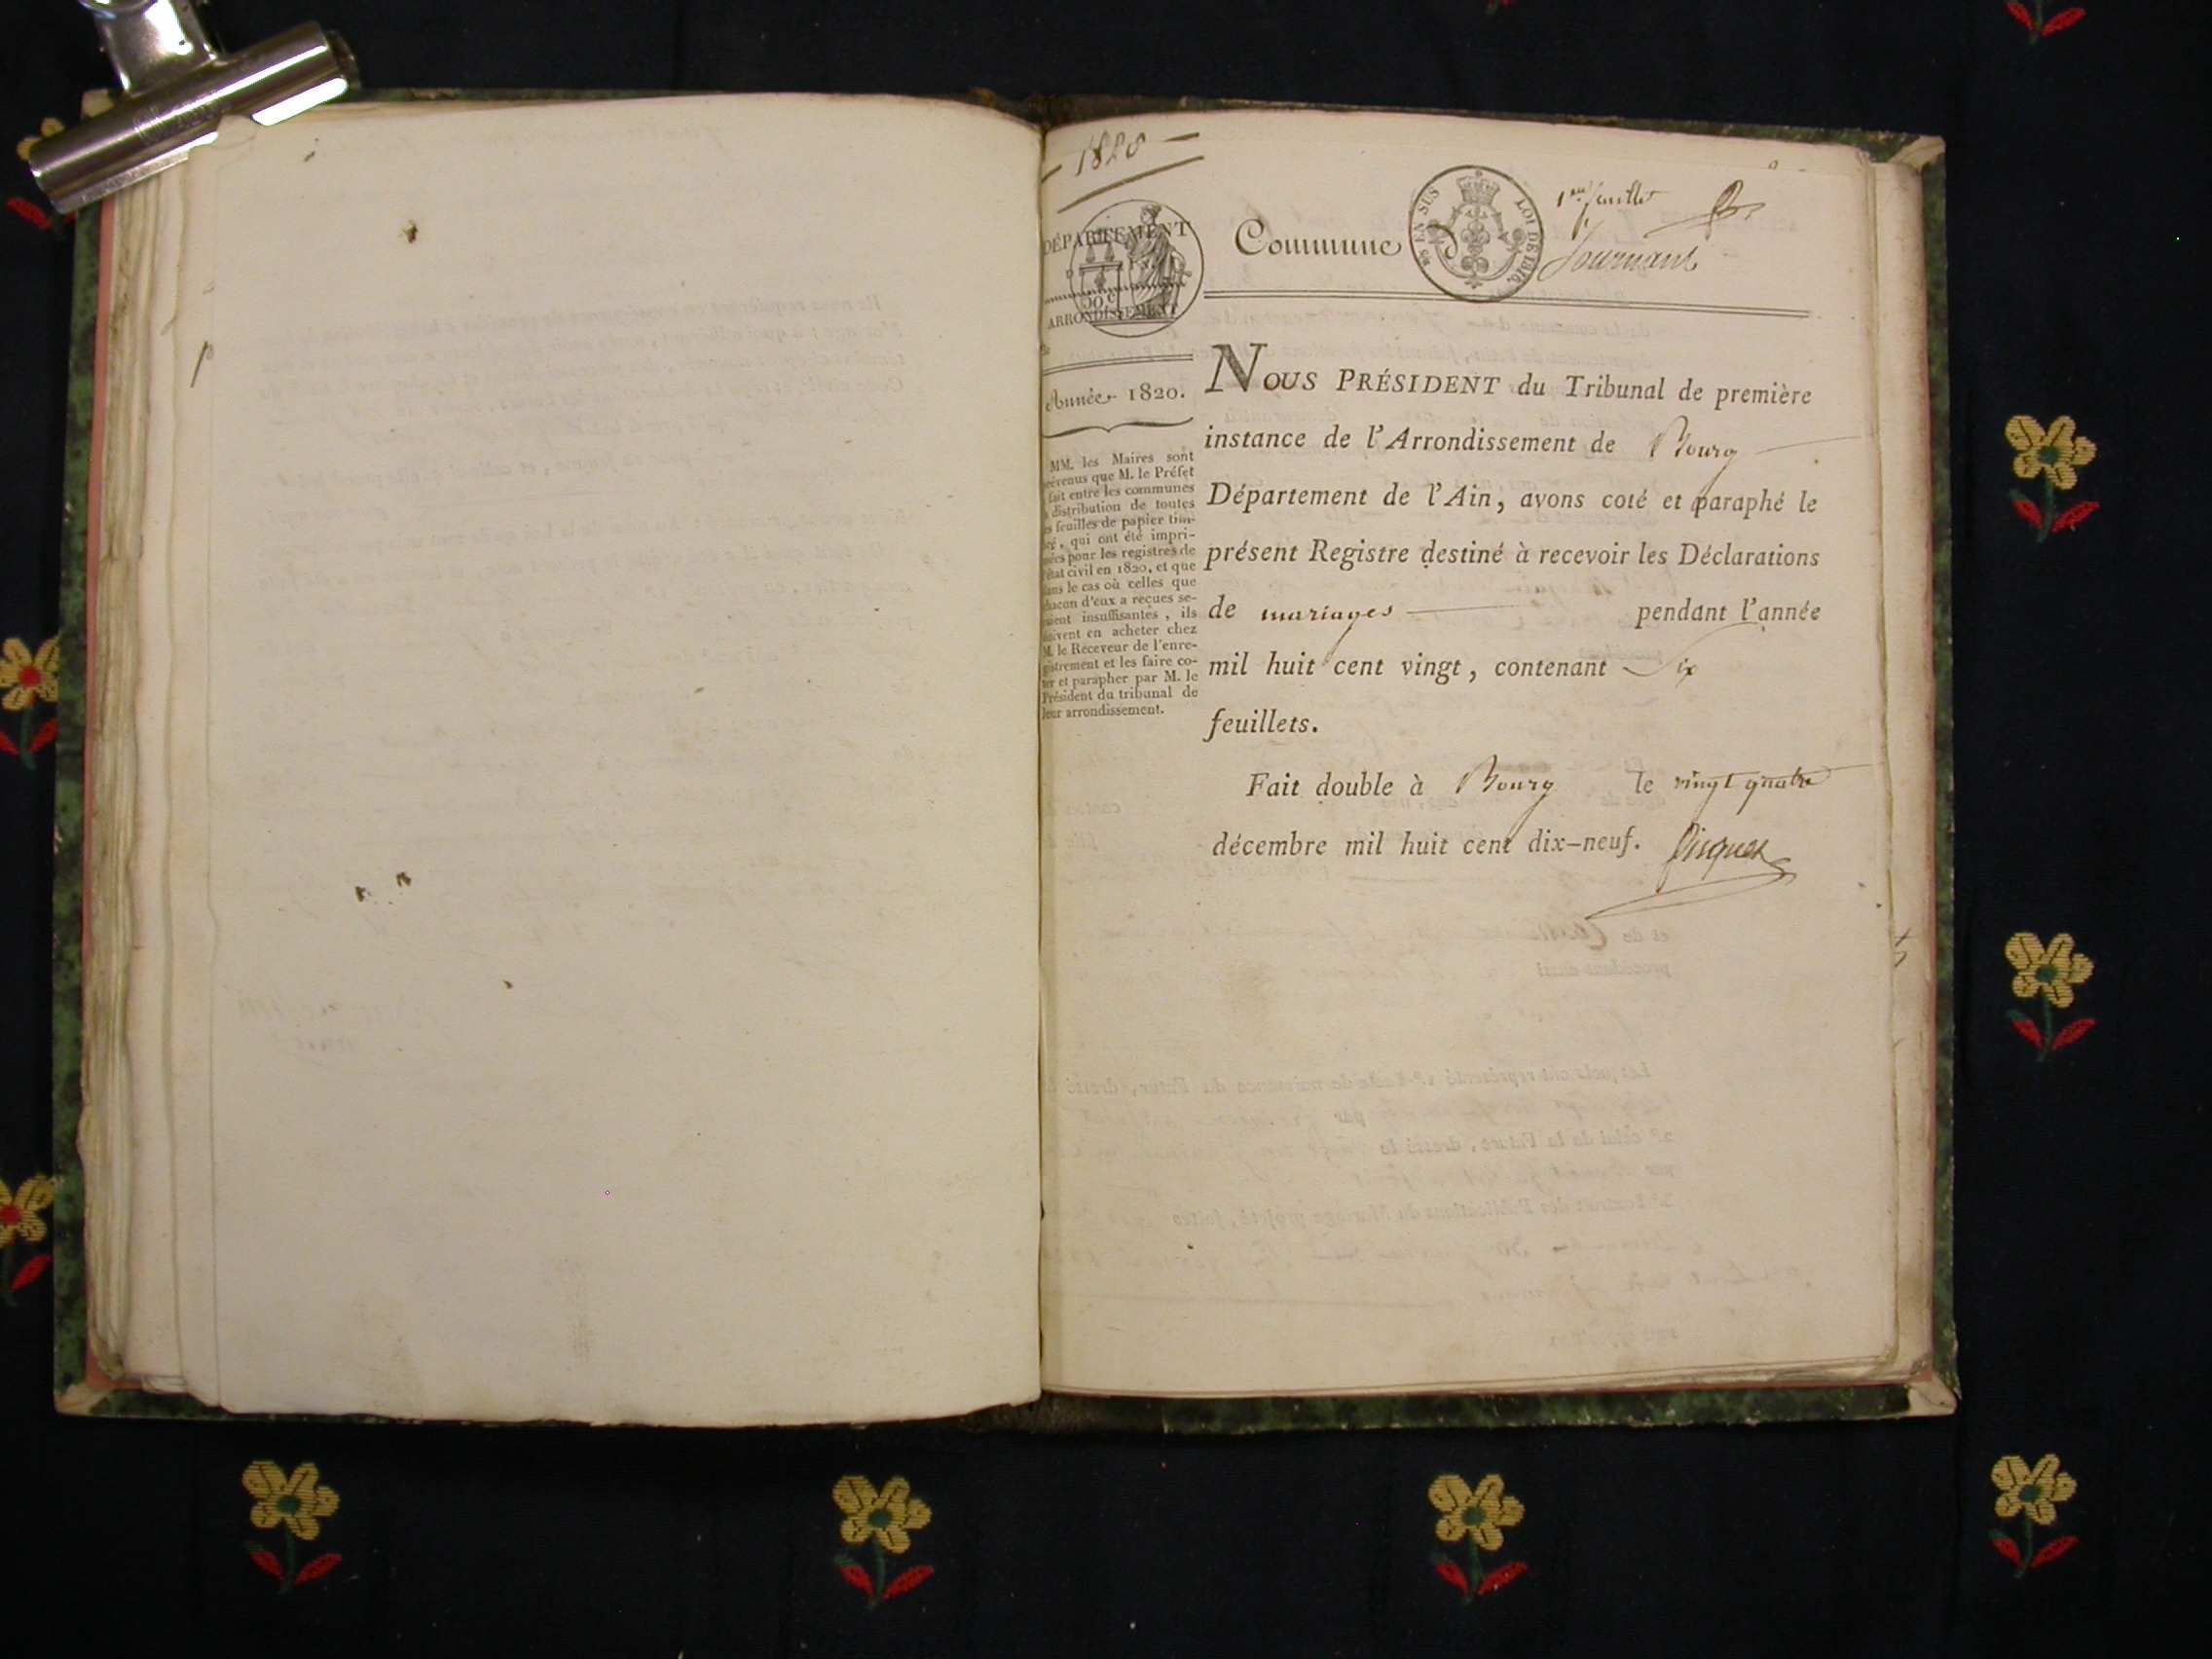 — 1820 —
DÉPARTEMENT
50 c
ARRONDISSEMENT
Année 1820.
MM. les Maires sont
prévenus que M. le Préfet
fait entre les communes
distribution de toutes
les feuilles de papier tim-
bré, qui ont été impri-
mées pour les registres de
l'état civil en 1820, et que
dans le cas où celles que
chacun d'eux a reçues se-
roient insuffisantes, ils
doivent en acheter chez
M. le Receveur de l'enre-
gistrement et les faire co-
ter et parapher par M. le
Président du tribunal de
leur arrondissement.
1er feuillet
Commune de Journans
EN SUS LOI DE 1816.
NOUS PRÉSIDENT du Tribunal de première
instance de l'Arrondissement de Bourg
Département de l'Ain, avons coté et paraphé le
présent Registre destiné à recevoir les Déclarations
de mariages pendant l'année
mil huit cent vingt, contenant Six
feuillets.
Fait double à Bourg le vingt quatre
décembre mil huit cent dix-neuf.